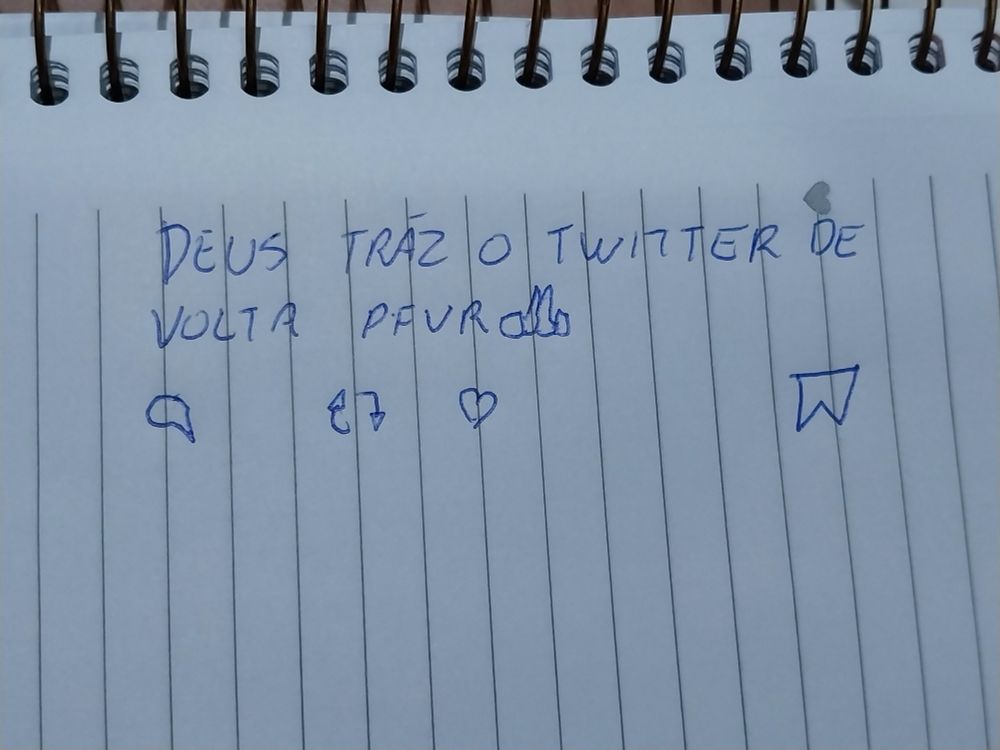 DEUS TRÁZ O TWITTER DE
VOLTA PFVR